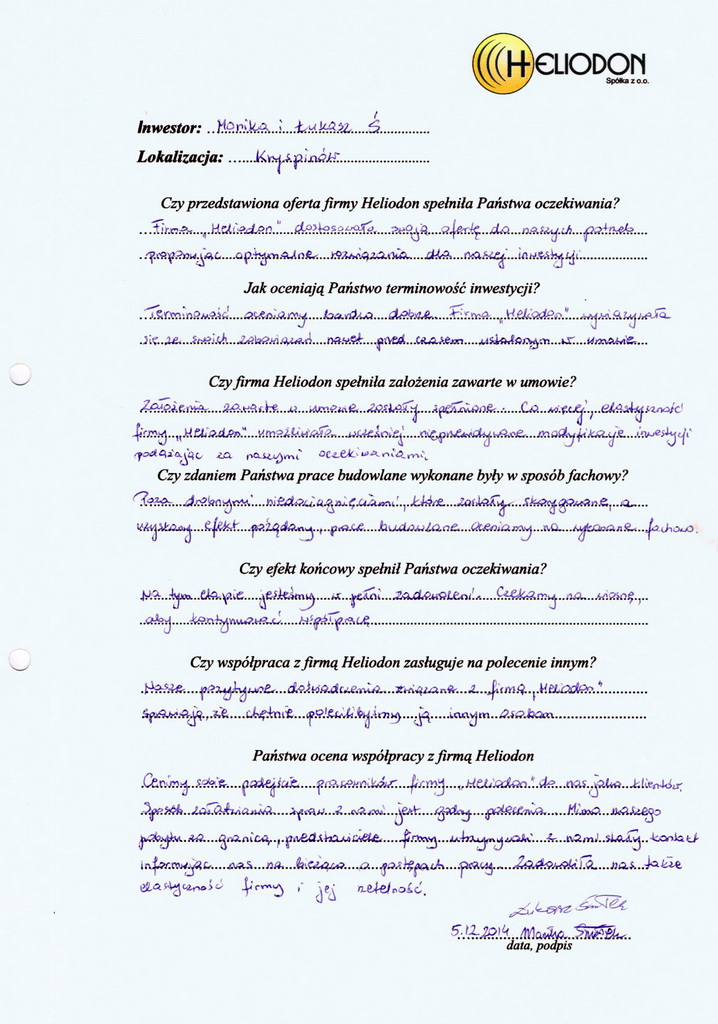 HELIODON
Spółka z o.o.
Inwestor: Monika i Łukasz Ś
Lokalizacja: Kryspinów
Czy przedstawiona oferta firmy Heliodon spełniła Państwa oczekiwania?
Firma „Heliodon" dostosowała swoją ofertę do naszych potrzeb
proponując optymalne rozwiązania dla naszej inwestycji
Jak oceniają Państwo terminowość inwestycji?
Terminowość oceniamy bardzo dobrze. Firma „Heliodon" wywiązywała
się ze swoich zobowiązań nawet przed czasem ustalonym w umowie
Czy firma Heliodon spełniła założenia zawarte w umowie?
Założenia zawarte w umowie zostały spełnione. Co więcej, elastyczność
firmy „Heliodon" umożliwiała wcześniej nieprzewidywane modyfikacje inwestycji
podążając za naszymi oczekiwaniami.
Czy zdaniem Państwa prace budowlane wykonane były w sposób fachowy?
Poza drobnymi niedociągnięciami, które zostały skorygowane, a
uzyskany efekt pożądany, prace budowlane oceniamy na wykonane fachowo.
Czy efekt końcowy spełnił Państwa oczekiwania?
Na tym etapie jesteśmy w pełni zadowoleni. Czekamy na wiosnę,
aby kontynuować współpracę
Czy współpraca z firmą Heliodon zasługuje na polecenie innym?
Nasze pozytywne doświadczenia związane z firmą „Heliodon"
sprawiają, że chętnie polecilibyśmy ją innym osobom
Państwa ocena współpracy z firmą Heliodon
Cenimy sobie podejście pracowników firmy „Heliodon" do nas jako klientów.
Sposób załatwiania spraw z nami jest godny polecenia. Mimo naszego
pobytu za granicą, przedstawiciele firmy utrzymywali z nami stały kontakt
informując nas na bieżąco o postępach pracy. Zadowoliła nas także
elastyczność firmy i jej rzetelność.
Łukasz
5.12.2014
data, podpis